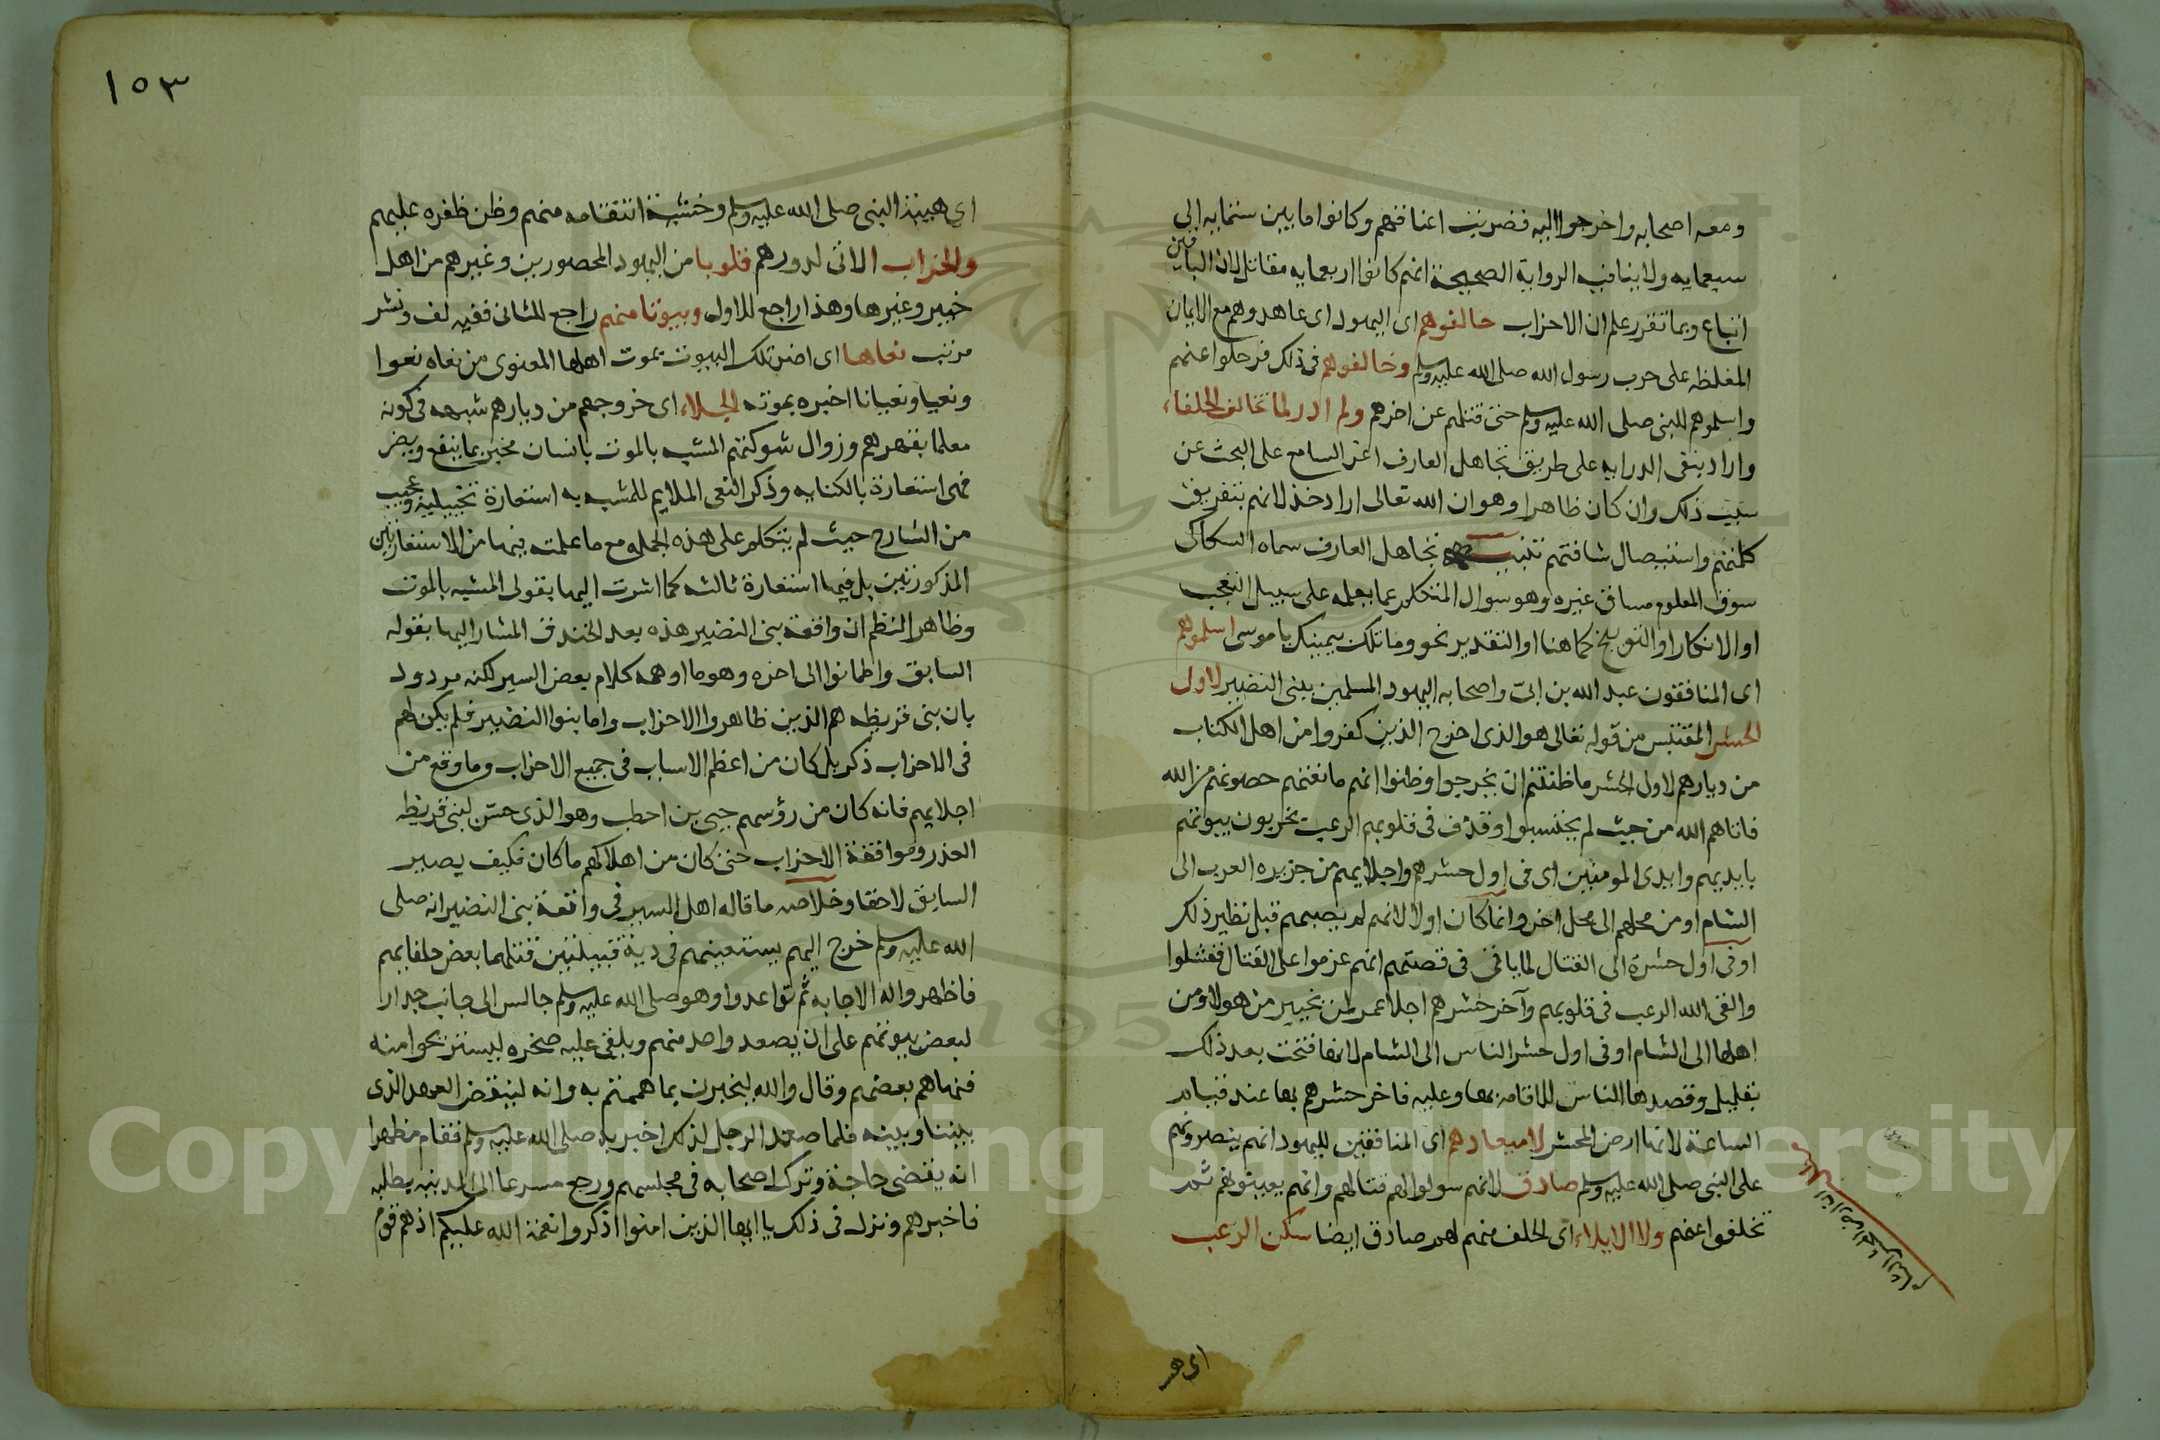 ومعه اصحابه واخرجوا اليه فضربت اعناقهم وكانوا ما بين ستمايه الى
سبعمايه ولا ينافيه الرواية الصحيحة انهم كانوا اربعمايه مقاتل لان الباقين
اتباع وبما تقرر علم ان الاحزاب حالفوهم اى اليهود اى عاهدوهم مع الايمان
المغلظه على حرب رسول الله صلى الله عليه وسلم وخالفوهم فى ذلك فرحلوا عنهم
واسلموهم للنبى صلى الله عليه وسلم حتى قتلهم عن اخرهم ولم ادر لما تخالف الحلفاء
واراد بنفى الدرايه على طريق تجاهل العارف اغر السامع على البحث عن
سبب ذلك وان كان ظاهرا وهو ان الله تعالى اراد خذلانهم بتفريق
كلمتهم واستيصال شافتهم تنبيه تجاهل العارف سماه السكاكى
سوق المعلوم مساق غيره وهو سوال المتكلم عما يعلمه على سبيل التعجب
او الانكار او التوبيخ كما هنا او التقرير نحو وما تلك بيمينك يا موسى اسلموهم
اى المنافقون عبد الله بن ابىّ واصحابه اليهود المسلمين بنى النضير لاول
الحشر المقتبس من قوله تعالى هو الذى اخرج الذين كفروا من اهل الكتاب
من ديارهم لاول الحشر ما ظننتم ان يخرجوا وظنوا انهم مانعتهم حصونهم من الله
فاتاهم الله من حيث لم يحتسبوا وقذف فى قلوبهم الرعب يخربون بيوتهم
بايديهم وايدى المومنين اى فى اول حشرهم واجلايهم من جزيره العرب الى
الشام او من محلهم الى محل اخر وانما كان اولا لانهم لم يصبهم قبل نظير ذلك
او فى اول حشرة الى القتال لما ياتى فى قصتهم انهم عزموا على القتال ففشلوا
والقى الله الرعب فى قلوبهم وآخر حشرهم اجلا عمر لمن بخيبر من هولا ومن
اهلها الى الشام او فى اول حشر الناس الى الشام لانها فتحت بعد ذلك
بقليل وقصدها الناس للاقامه بها وعليه فاخر حشرهم بها عند قيام
الساعة لانها ارض المحشر لا ميعادهم اى المنافقين لليهود انهم ينصرونهم
على النبى صلى الله عليه وسلم صادق لانهم سولوا لهم قتالهم وانهم يعينونهم ثم
تخلفوا عنهم ولا الايلاء اى الحلف منهم لهم صادق ايضا سكن الرعب
اى هيبة
١٥٣
اى هيبة النبى صلى الله عليه وسلم وخشية انتقامه منهم وظن ظفره عليهم
والخراب الاتى لدورهم قلوبا من اليهود المحصورين وغيرهم من اهل
خيبر وغيرها وهذا راجع للاول وبيوتا منهم راجع للثانى ففيه لف ونشر
مرتب نعاها اى اخبر تلك البيوت بموت اهلها المعنوى من نعاه نعوا
ونعيا ونعيانا اخبره بموته الجلاء اى خروجهم من ديارهم شبهه فى كونه
معلما بقهرهم وزوال شوكتهم المشبه بالموت بانسان مخبر بما ينفع ويضر
فهى استعارة بالكنايه وذكر النعى الملايم للمشبه به استعارة تخييلية وعجيب
من الشارح حيث لم يتكلم على هذه الجمله مع ما علمت فيها من الاستعارتين
المذكورتين بل فيها استعارة ثالثه كما اشرت اليها بقولى المشبه بالموت
وظاهر النظم ان واقعة بنى النضير هذه بعد الخندق المشار اليها بقوله
السابق واطمانوا الى اخره وهو ما اوهمه كلام بعض السير لكنه مردود
بان بنى قريظه هم الذين ظاهروا الاحزاب واما بنوا النضير فلم يكن لهم
فى الاحزاب ذكر بل كان من اعظم الاسباب فى جميع الاحزاب وما وقع من
اجلايهم فانه كان من رؤسهم حيى بن احطب وهو الذى حسّن لبنى قريظه
الغدر وموافقة الاحزاب حتى كان من اهلاكهم ما كان فكيف يصير
السابق لاحقا وخلاصه ما قاله اهل السير فى واقعة بنى النضير انه صلى
الله عليه وسلم خرج اليهم يستعينهم فى دية قتيلين قتلهما بعض حلفايهم
فاظهروا له الاجابه ثم تواعدوا وهو صلى الله عليه وسلم جالس الى جانب جدار
لبعض بيوتهم على ان يصعد واحد منهم ويلقى عليه صخره ليستريحوا منه
فنهاهم بعضهم وقال والله ليخبرن بما هممتم به وانه لينقض العهد الذى
بيننا وبينه فلما صعد الرجل لذلك اخبر به صلى الله عليه وسلم فقام مظهرا
انه يقضى حاجة وترك اصحابه فى مجلسهم ورجع مسرعا الى المدينه يطلبه
فاخبرهم ونزل فى ذلك يا ايها الذين امنوا اذكروا نعمة الله عليكم اذ هم قوم